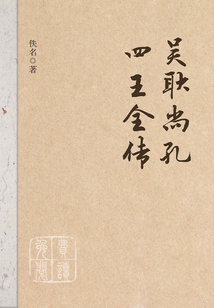 吴耿尚孔
四王全传
佚名◎著